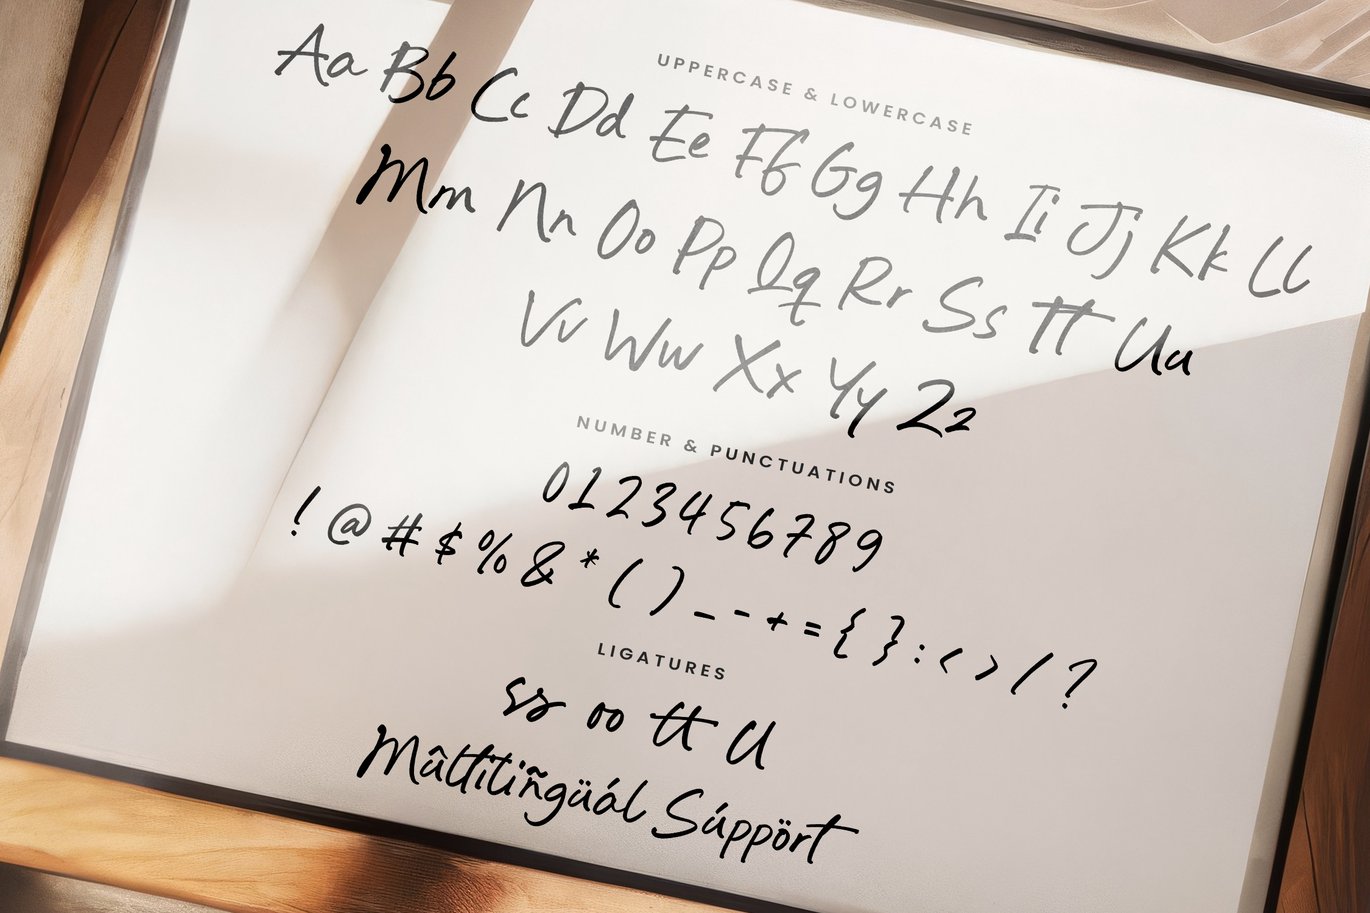 UPPERCASE & LOWERCASE
Aa Bb Cc Dd Ee Ff Gg Hh Ii Jj Kk Ll
Mm Nn Oo Pp Qq Rr Ss Tt Uu
Vv Ww Xx Yy Zz
NUMBER & PUNCTUATIONS
0123456789
! @ # $ % & * ( ) _ - + = { } : < > / ?
LIGATURES
ss oo tt ll
Mâltitiñgüál Súppört